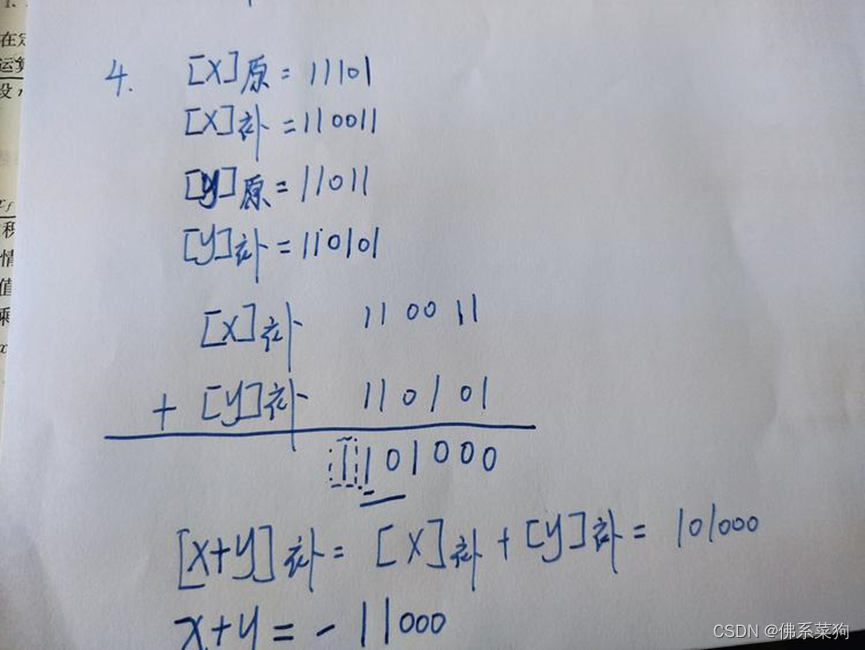 在定
运算
设
积
情
值
乘
4. [X]原 = 11101
[X]补 = 110011
[y]原 = 11011
[y]补 = 110101
[X]补 110011
+ [y]补 110101
1101000
[X+y]补 = [X]补 + [y]补 = 101000
X+y = - 11000
CSDN @佛系菜狗